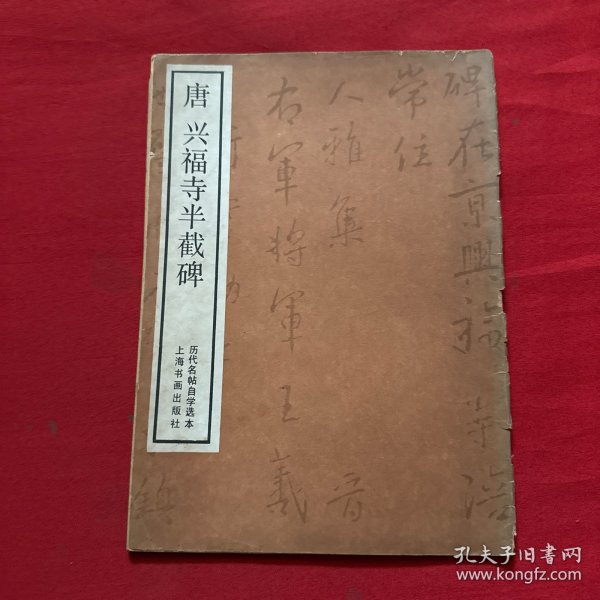 唐 兴福寺半截碑
历代名帖自学选本
上海书画出版社
碑在京兴福寺陪
常住
人雅集 晋
右军将军王羲
孔夫子旧书网
www.kongfz.com